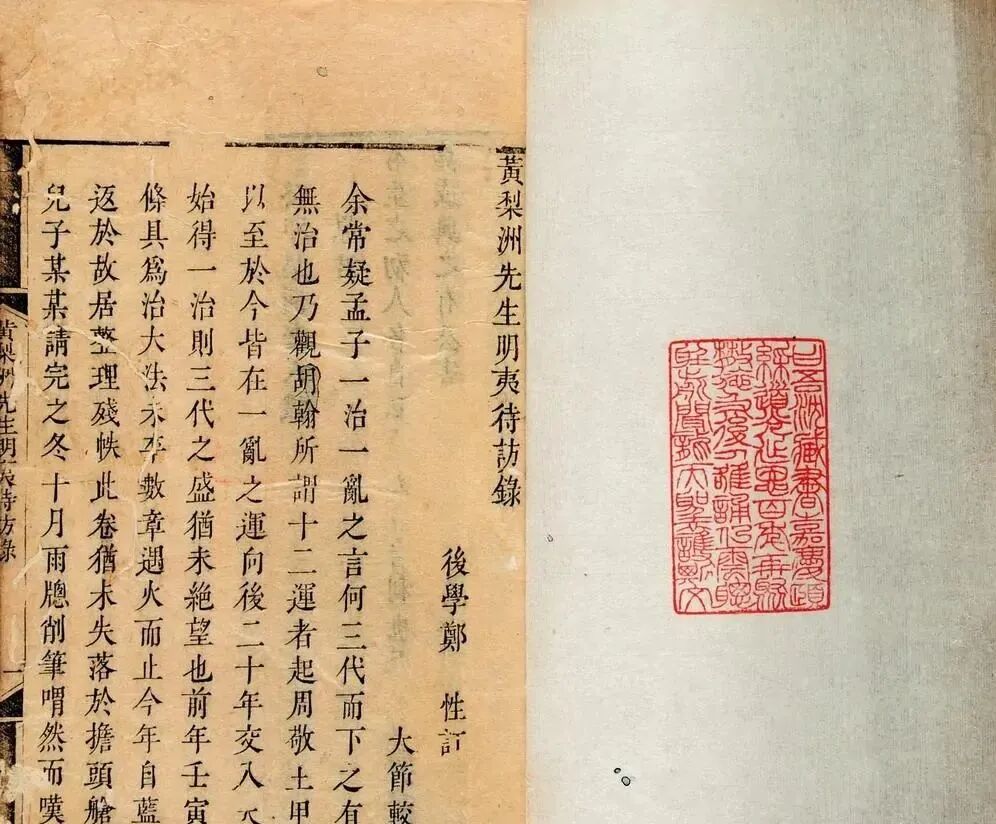 黃梨洲先生明夷待訪錄
後學鄭　性訂
大節較
余常疑孟子一治一亂之言何三代而下之有
無治也乃觀胡翰所謂十二運者起周敬王甲
以至於今皆在一亂之運向後二十年交入
始得一治則三代之盛猶未絕望也前年壬寅
條具爲治大法未卒數章遇火而止今年自藍
返於故居整理殘帙此卷猶未失落於擔頭艙
兒子某某請完之冬十月雨牕削筆喟然而嘆
黃梨洲先生明夷待訪錄
一